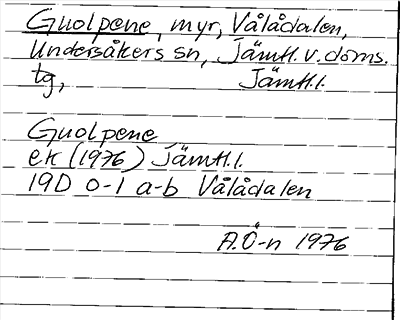 Guolpene, myr, Vålådalen,
Undersåkers sn, Jämtl. v. doms.
tg, Jämtl.l.
Guolpene
ek (1976) Jämtl.l.
19D 0-1 a-b Vålådalen
A.Ö-n 1976